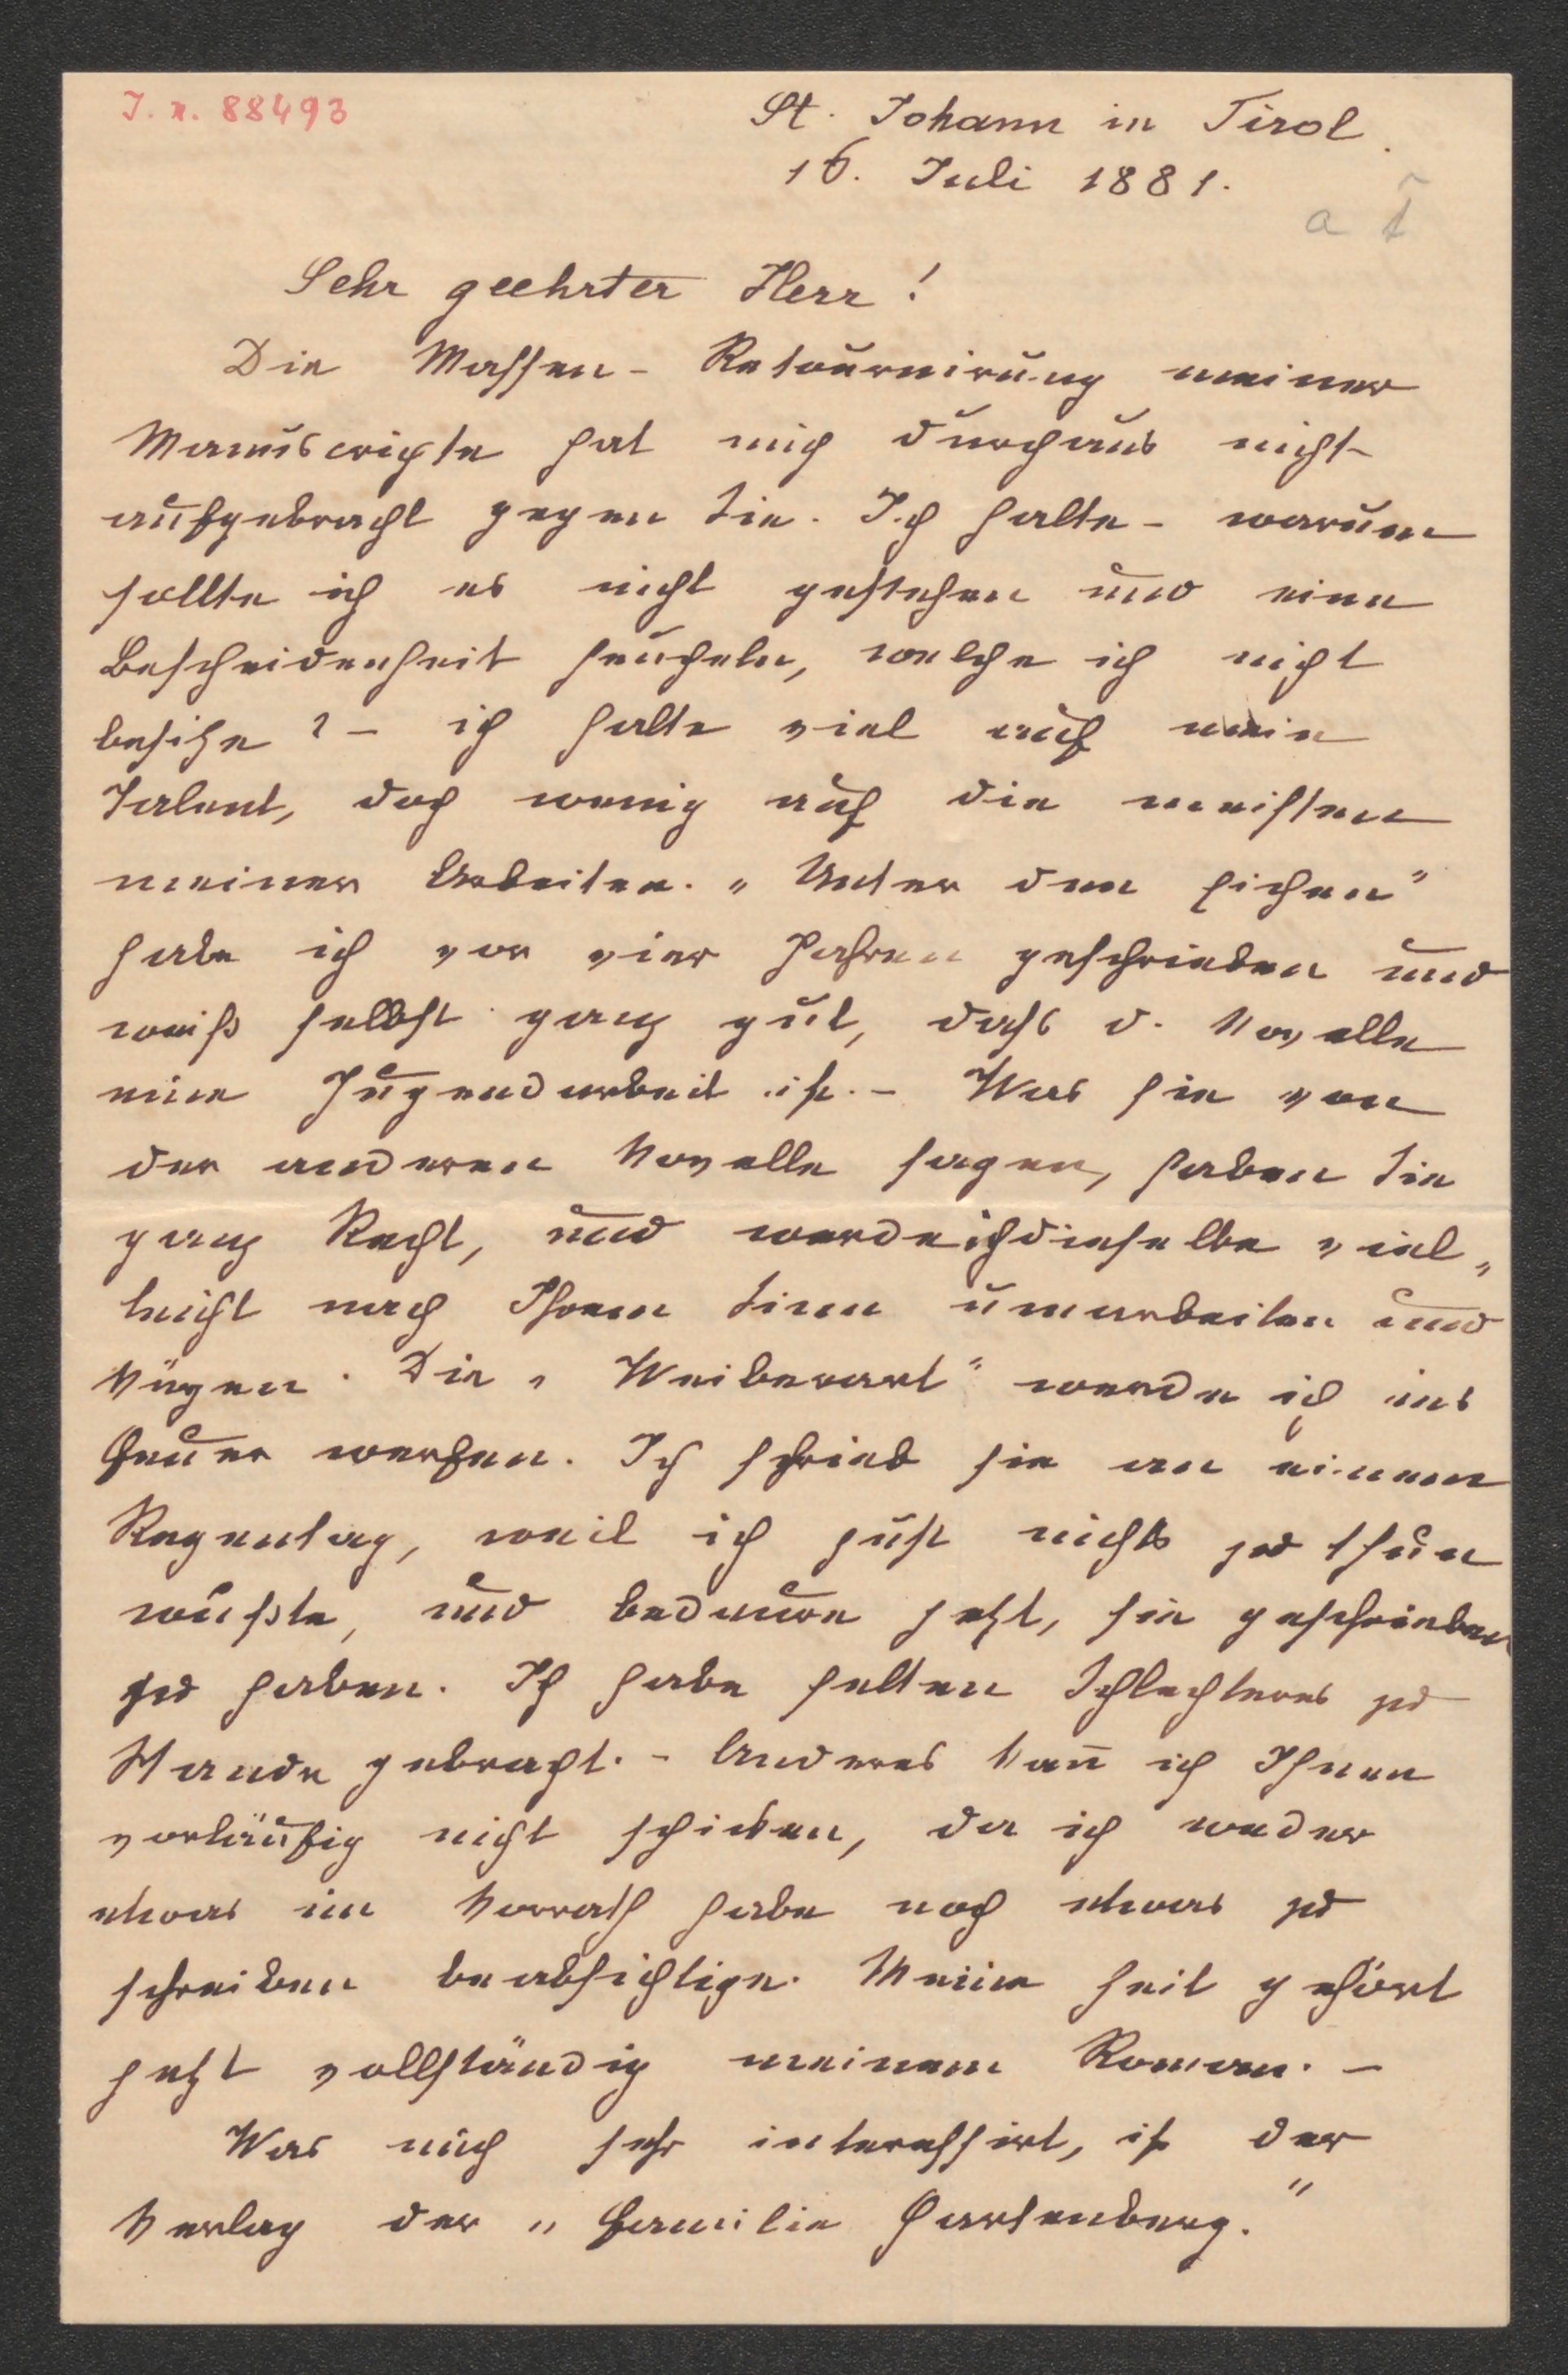 I. N. 88493
St. Johann in Tirol.
16. Juli 1881.
a
Sehr geehrter Herr!
Die Massen- Retournirung meiner
Manuscripte hat mich durchaus nicht
aufgebracht gegen Sie. Ich halte - warum
sollte ich es nicht gestehen und eine
Bescheidenheit heucheln, welche ich nicht
besitze? - ich halte viel auf mein
Talent, doch wenig auf die meisten
meiner Arbeiten. „Unter den Eichen"
habe ich vor vier Jahren geschrieben und
weiß selbst ganz gut, dass d. Novelle
eine Jugendarbeit ist. - Was Sie von
der anderen Novelle sagen, haben Sie
ganz Recht, und werde ich dieselbe viel„
leicht nach Ihrem Sinn umarbeiten und
kürzen. Die „Weiberart" werde ich ins
Feuer werfen. Ich schrieb sie an einem
Regentag, weil ich just nichts zu thun
wußte, und bedaure jetzt, sie geschrieben
zu haben. Ich habe selten Schlechteres zu
Stande gebracht. - Anderes kan̄ ich Ihnen
vorläufig nicht schicken, da ich weder
etwas im Vorrath habe noch etwas zu
schreiben beabsichtige. Meine Zeit gehört
jetzt vollständig meinem Roman. -
Was mich sehr interessirt, ist der
Verlag der „Familie Hartenberg."